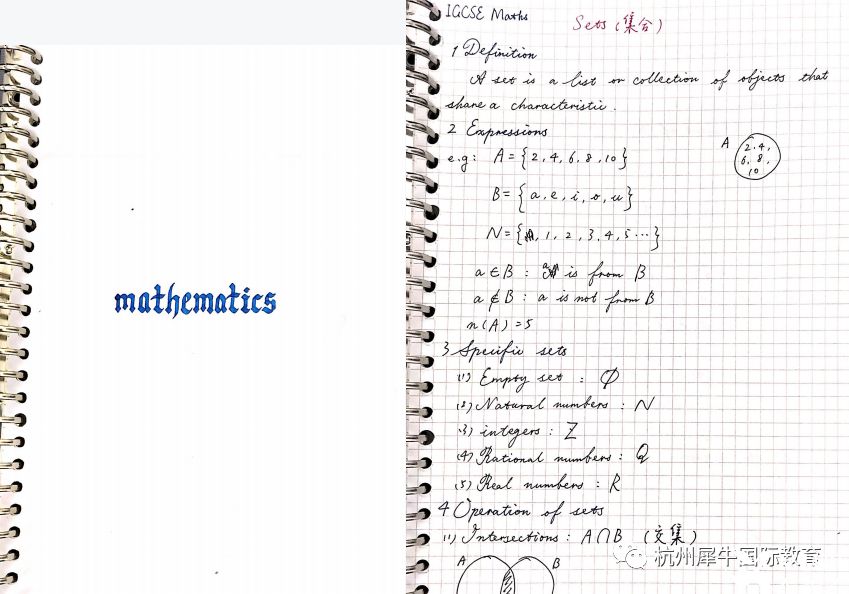 mathematics
IGCSE Maths
Sets (集合)
1 Definition
A set is a list or collection of objects that
share a characteristic.
2 Expressions
e.g: A={2,4,6,8,10}
A
2,4,
6,8,
10
B={a,e,i,o,u}
N={1,2,3,4,5...}
a∈B : a is from B
a∉B : a is not from B
n(A)=5
3 Specific sets
(1) Empty set : ∅
(2) Natural numbers : N
(3) integers : Z
(4) Rational numbers : Q
(5) Real numbers : R
4 Operation of sets
(1) Intersections : A∩B (交集)
A B
杭州犀牛国际教育